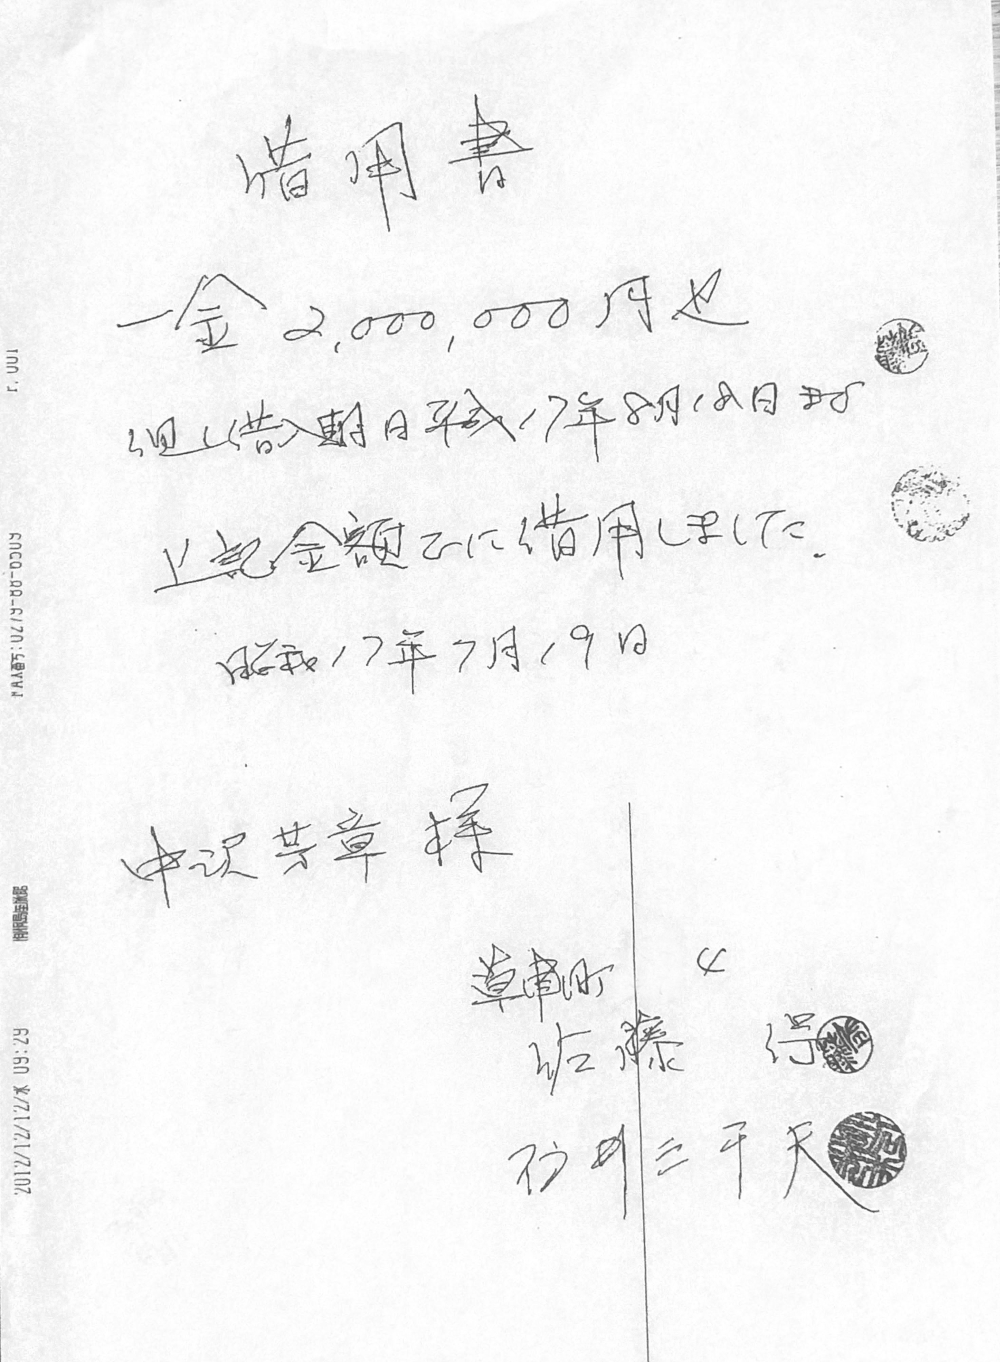 借用書
一金 2,000,000円也
但し借入期日平成17年8月18日まで
上記金額正に借用しました.
昭和17年7月19日
中沢共章 様
草津町 4
佐藤 保
石井三千夫
2012/12/12/水 09:29